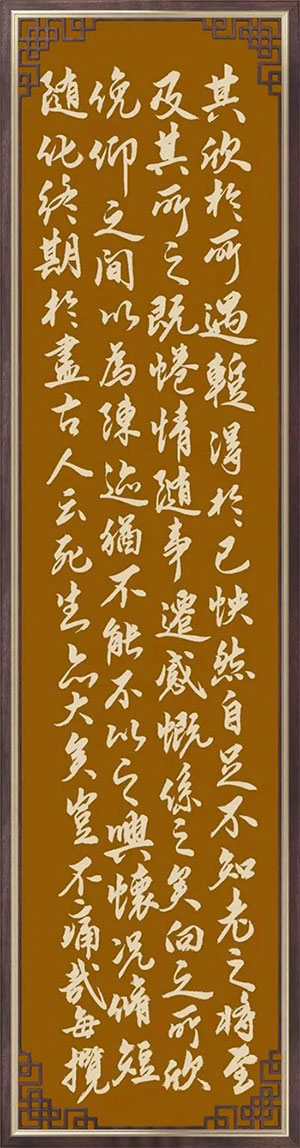 其欣於所遇暫得於己怏然自足不知老之將至
及其所之既惓情隨事遷感慨係之矣向之所欣
俛仰之間以為陳迹猶不能不以之興懷況脩短
隨化終期於盡古人云死生亦大矣豈不痛哉每攬